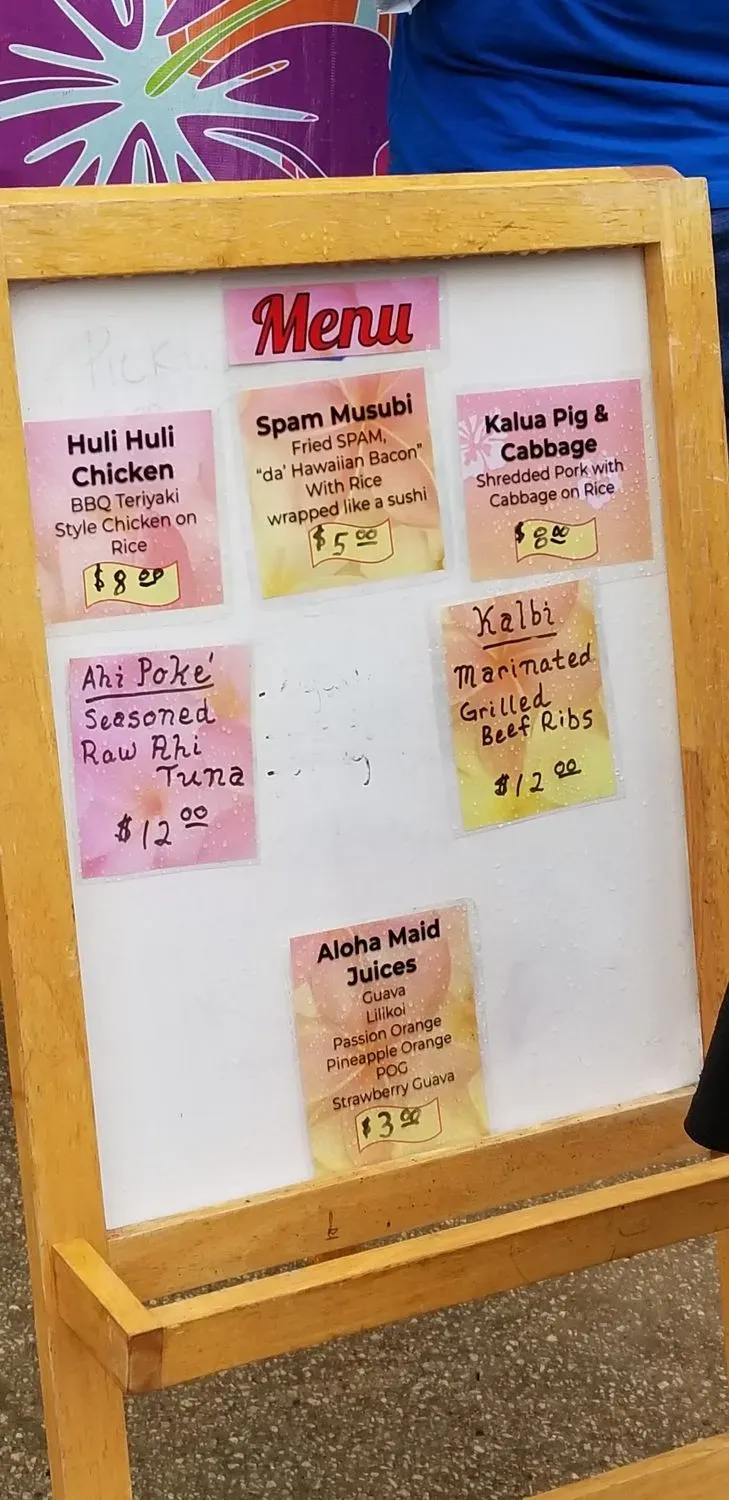 Menu
Huli Huli
Chicken
BBQ Teriyaki
Style Chicken on
Rice
$8.00
Spam Musubi
Fried SPAM,
"da' Hawaiian Bacon"
With Rice
wrapped like a sushi
$5 00
Kalua Pig &
Cabbage
Shredded Pork with
Cabbage on Rice
$8 00
Ahi Poké
Seasoned
Raw Ahi
Tuna
$12 00
Kalbi
Marinated
Grilled
Beef Ribs
$12 00
Aloha Maid
Juices
Guava
Lilikoi
Passion Orange
Pineapple Orange
POG
Strawberry Guava
$3 00